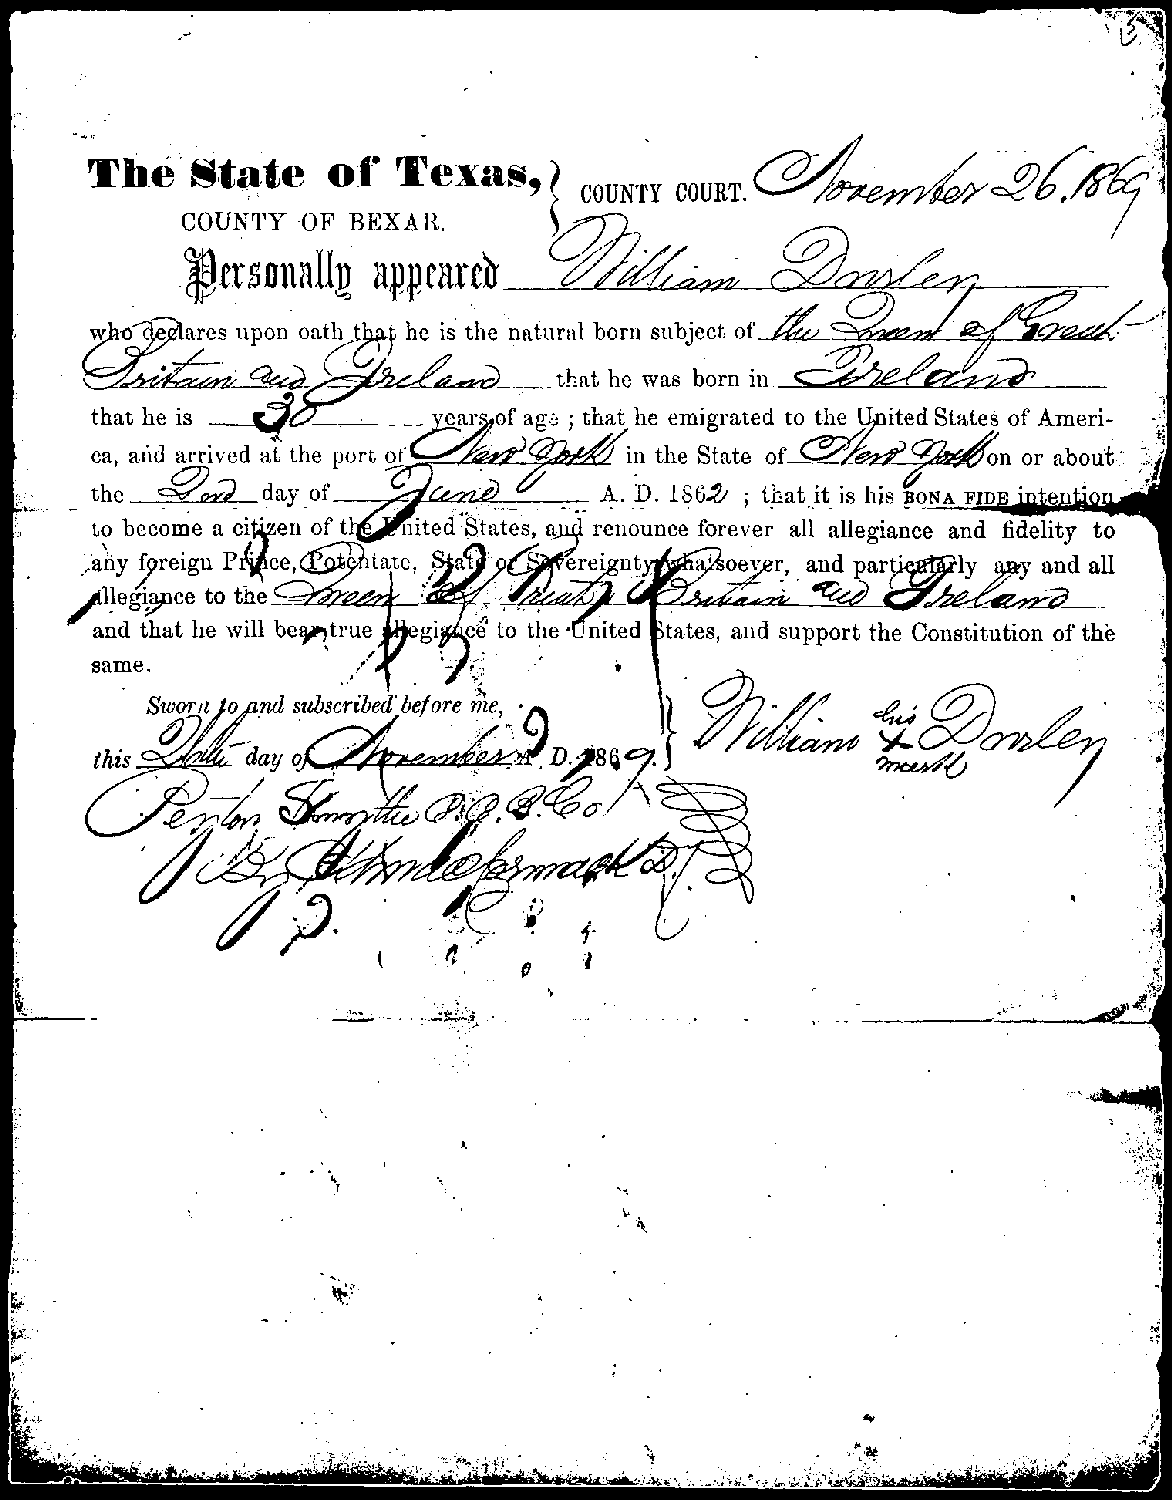 The State of Texas, } COUNTY COURT. November 26. 1869
COUNTY OF BEXAR.
Personally appeared William
who declares upon oath that he is the natural born subject of the Queen of Great
Britain and Ireland that he was born in Ireland
that he is 30 years of age ; that he emigrated to the United States of Ameri-
ca, and arrived at the port of New York in the State of New York on or about
the 2nd day of June A. D. 1862 ; that it is his BONA FIDE intention
to become a citizen of the United States, and renounce forever all allegiance and fidelity to
any foreign Prince, Potentate, State or Sovereignty whatsoever, and particularly any and all
allegiance to the Queen of Great Britain and Ireland
and that he will bear true allegiance to the United States, and support the Constitution of the
same.
Sworn to and subscribed before me,
this day of November A. D. 1869. } William his x mark
Smythe C. C. B. Co